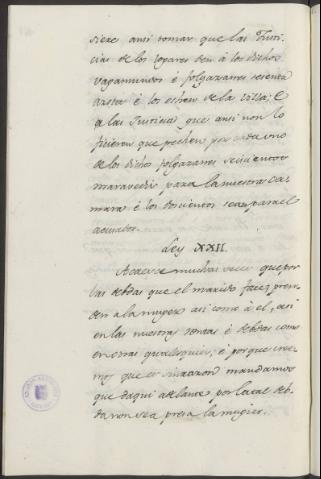 siere ansi tomar que las Justi-
cias de los logares den à los dichos
vagamundos é folgazanes sesenta
azotes é los echen de la villa; E
a las Justicias que ansi non lo
ficieren que pechen por cada uno
de los dichos folgazanes seiscientos
maravedis para la nuestra Ca-
mara é los doscientos sean para el
acusador.
Ley XXII.
Acaesce muchas veces que por
las debdas que el marido face, pren-
den a la muger asi como à el, asi
en las nuestras rentas é debdas como
en otras qualesquier; é porque
que es sinrazon mandamos
que daqui adelante por la tal deb-
da non sea presa la muger.